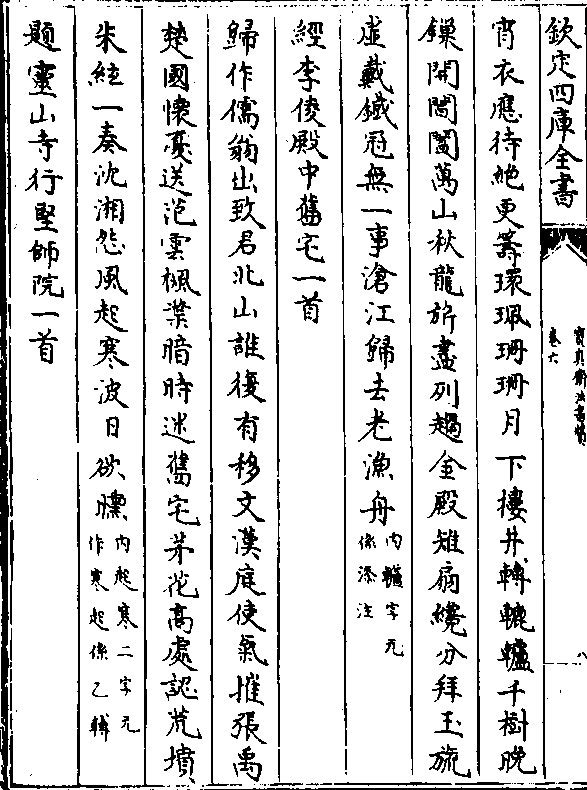 欽定四庫全書
寶真齋法書贊
卷六
八
宵衣應待絶更籌環珮珊珊月下樓井轉轆轤千樹曉
鏁開閶闔萬山秋龍旂盡列趨金殿雉扇纔分拜玉旒
虚戴鐵冠無一事滄江歸去老漁舟内轤字元係添注
經李俊殿中舊宅一首
歸作儒翁出致君北山誰復有移文漢庭使氣摧張禹
楚國懷憂送范雲楓葉暗時迷舊宅芳花髙處認荒墳
朱絃一奏沈湘怨風起寒波日欲曛内起寒二字元作寒起係乙轉
題靈山寺行堅師院一首